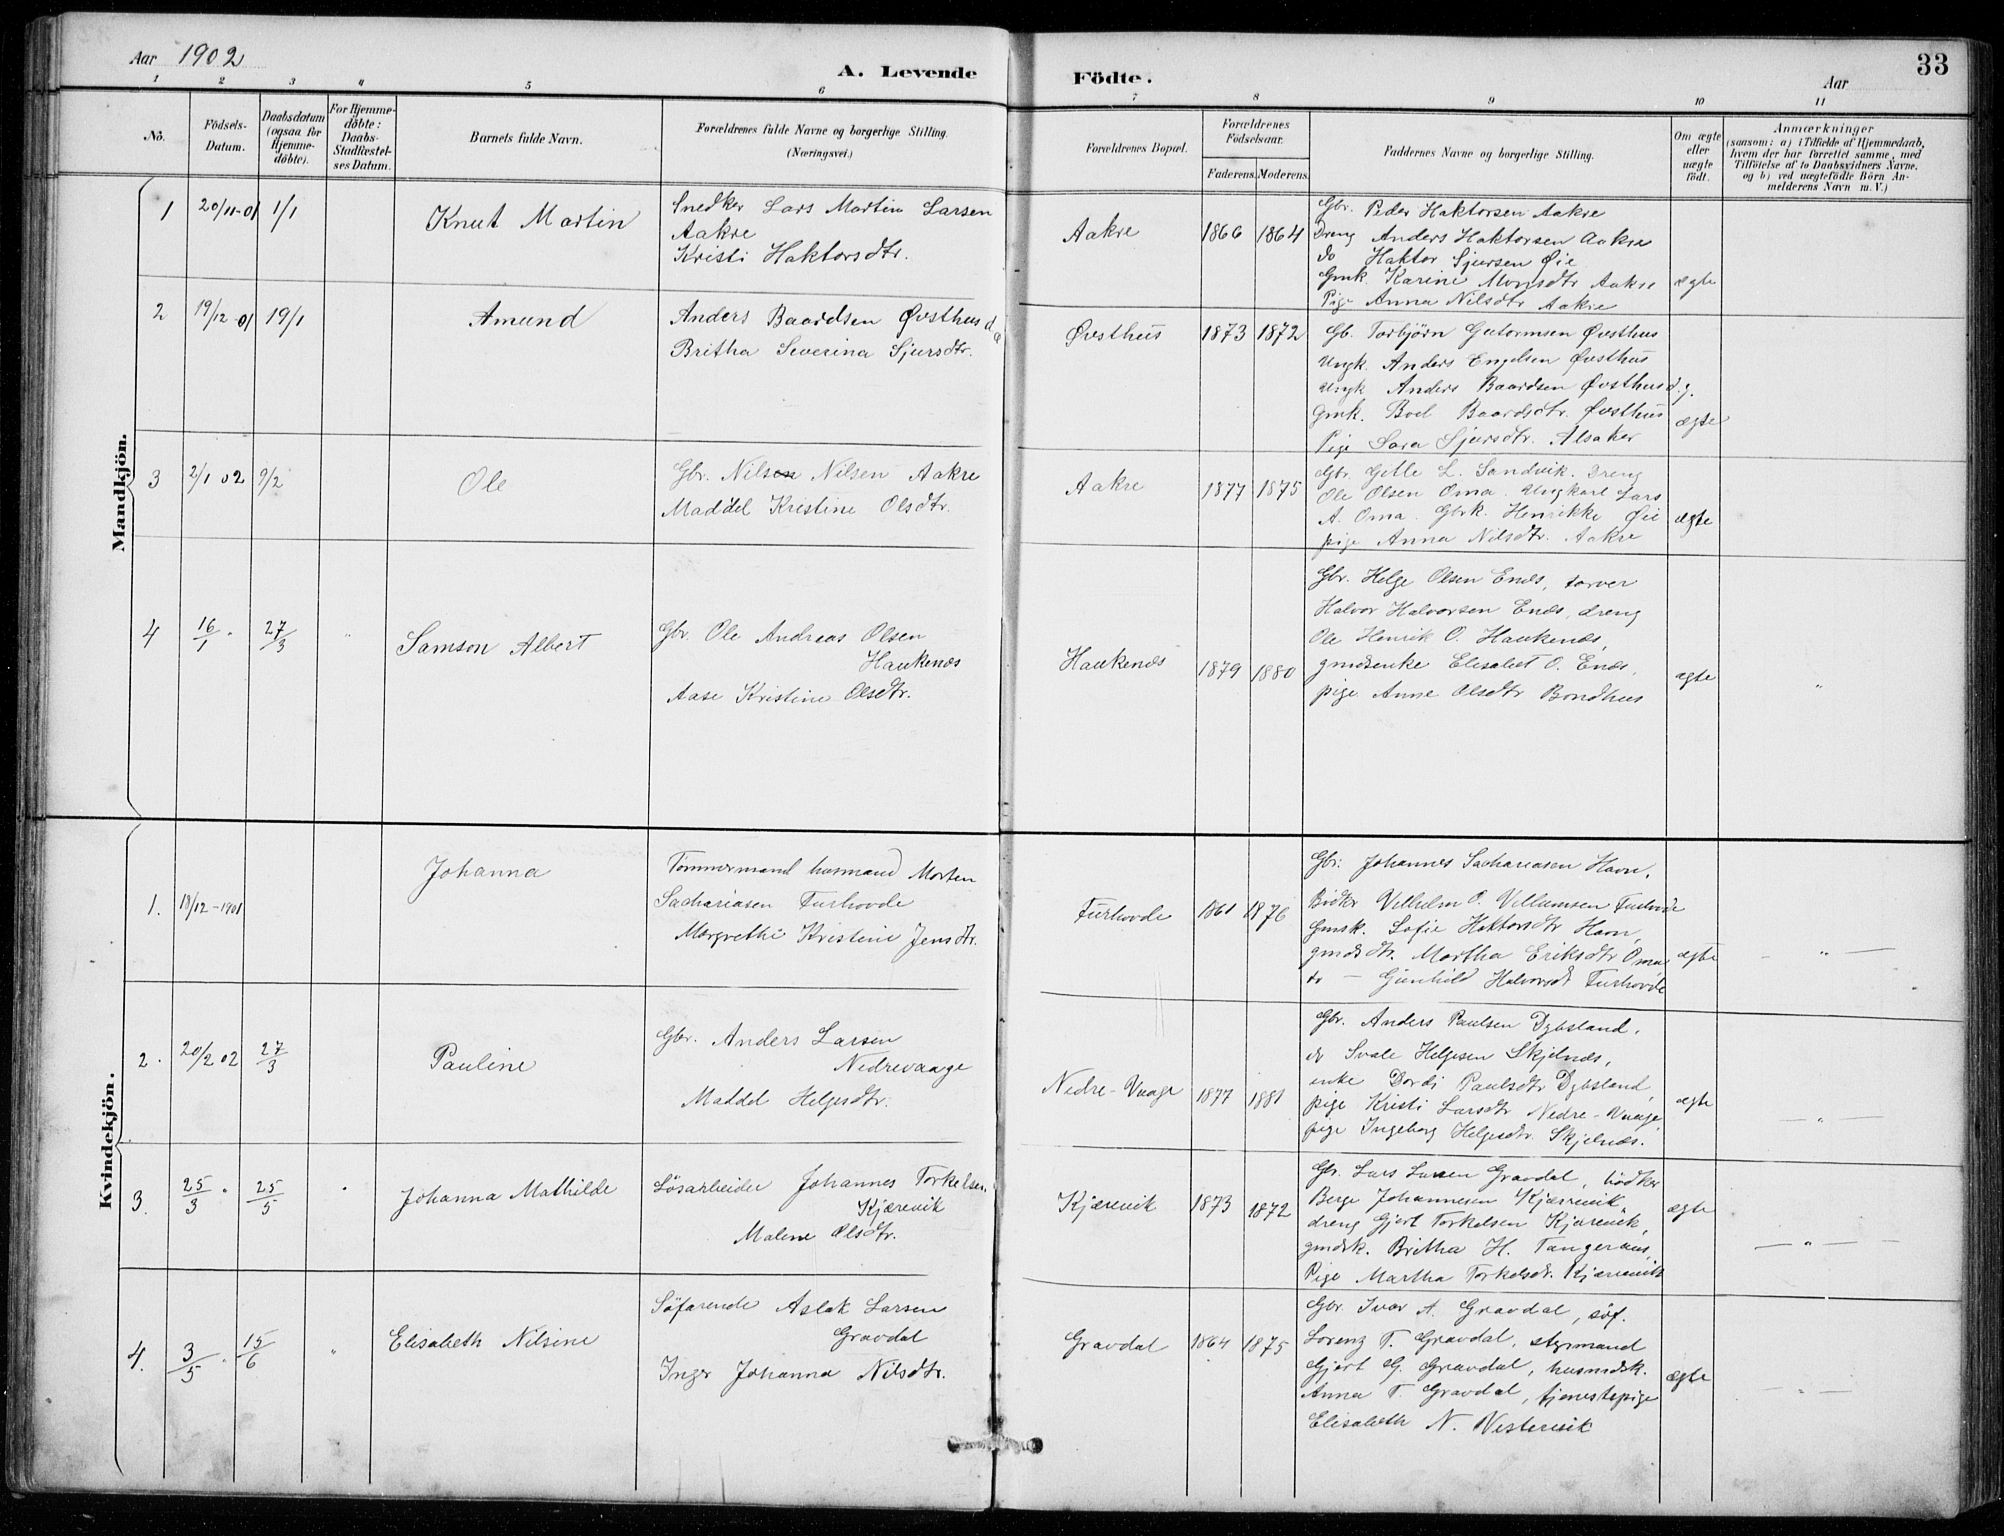 Aar 1902
A. Levende Födte.
Aar
33
1 2 3 4 5 6 7 8 9 10 11
No.
Födsels-Datum.
Daabsdatum (ogsaa for Hjemme-döbte).
For Hjemme-döbte: Daabs-Stadfæstelses Datum.
Barnets fulde Navn.
Forældrenes fulde Navne og borgerlige Stilling.
(Næringsvei.)
Forældrenes Bopæl.
Forældrenes Födselsaar.
Faderens. Moderens.
Faddernes Navne og borgerlige Stilling.
Om ægte eller uægte födt.
Anmærkninger
(saasom: a) i Tilfælde af Hjemmedaab,
hvem der har forrettet samme, med
Tilföielse af to Daabsvidners Navne,
og b) ved uægtefödte Börn An-
melderens Navn m. V.)
Mandkjön.
1 20/11-01 1/1
Knut Martin
Snedker Lars Martin Larsen
Aakre
Kristi Haktorsdtr.
Aakre
1866 1864
Gbr. Peder Haktorsen Aakre
Dreng Anders Haktorsen Aakre
do Haktor Sjursen Øie
Gmk. Karine Monsdtr Aakre
Pige Anna Nilsdtr Aakre
ægte
2 19/12-01 19/1
Amund
Anders Baardsen Øvsthus d.
Britha Severina Sjursdtr.
Øvsthus
1873 1872
Gb. Torbjørn Gutormsen Øvsthus
Ungk. Anders Engelsen Øvsthus
Ungk Anders Baardsen Øvsthus d.y.
Gmk. Boel Baardsdtr. Øvsthus
Pige Sara Sjursdtr. Alsaker
ægte
3 2/1 02 9/2
Ole
Gbr. Nilsen Nilsen Aakre
Maddel Kristine Olsdtr.
Aakre
1877 1875
Gbr Gitle L. Sandvik. Dreng
Ole Olsen Oma. Ungkarl Lars
A. Oma. Gbrk. Henrikke Øie
pige Anna Nilsdtr. Aakre
ægte
4 16/1 " 27/3 "
Samson Albert
Gbr. Ole Andreas Olsen
Haukenæs
Aase Kristine Olsdtr.
Haukenæs
1879 1880
Gbr. Helge Olsen Enæs,
Halvor Halvorsen Enæs, dreng
Ole Henrik O. Haukenæs,
gmdsenke Elisabet O. Enæs,
pige Anne Olsdtr Bondhus
ægte "
Kvindekjön.
1. 18/12-1901
Johanna
Tømmermand husmand Morten
Sachariasen Furhovde
Margrethe Kristine Jensdtr.
Furhovde
1861 1876
Gbr: Johannes Sachariasen Havn,
Bødker Vilhelm O. Villumsen Furhovde
Gmsk. Sofie Haktorsdtr Havn,
gmdsdtr. Martha Eriksdtr Oma
do — Gunhild Halvorsdt Furhovde
ægte — " —
2. 20/2 02 27/3
Pauline
Gbr. Anders Larsen
Nedrevaage
Maddel Helgesdtr.
Nedre-Vaage
1877 1881
Gbr. Anders Paulsen Dybsland,
do Svale Helgesen Skjelnæs,
enke Dordi Paulsdtr Dybsland,
pige Kristi Larsdtr Nedre-Vaage,
pige Ingeborg Helgesdtr. Skjelnæs.
ægte — " —
3. 25/3 " 25/5 "
Johanna Mathilde
Løsarbeider Johannes Torkelsen
Kjærevik
Malene Olsdtr.
Kjærevik
1873 1872
Gbr. Lars Larsen Gravdal, bødker
Berge Johannesen Kjærevik,
dreng Gjert Torkelsen Kjærevik,
gmdsk. Britha H. Tangeraas,
Pige Martha Torkelsdt. Kjærevik
ægte — " —
4. 3/5 " 15/6 "
Elisabeth Nilsine
Søfarende Aslak Larsen
Gravdal
Inger Johanna Nilsdtr.
Gravdal
1864 1875
Gbr. Ivar A. Gravdal, søf.
Lorenz T. Gravdal, styrmand
Gjert G. Gravdal, husmdsk.
Anna T. Gravdal, tjenestepige
Elisabeth N. Vestervik
ægte — " —